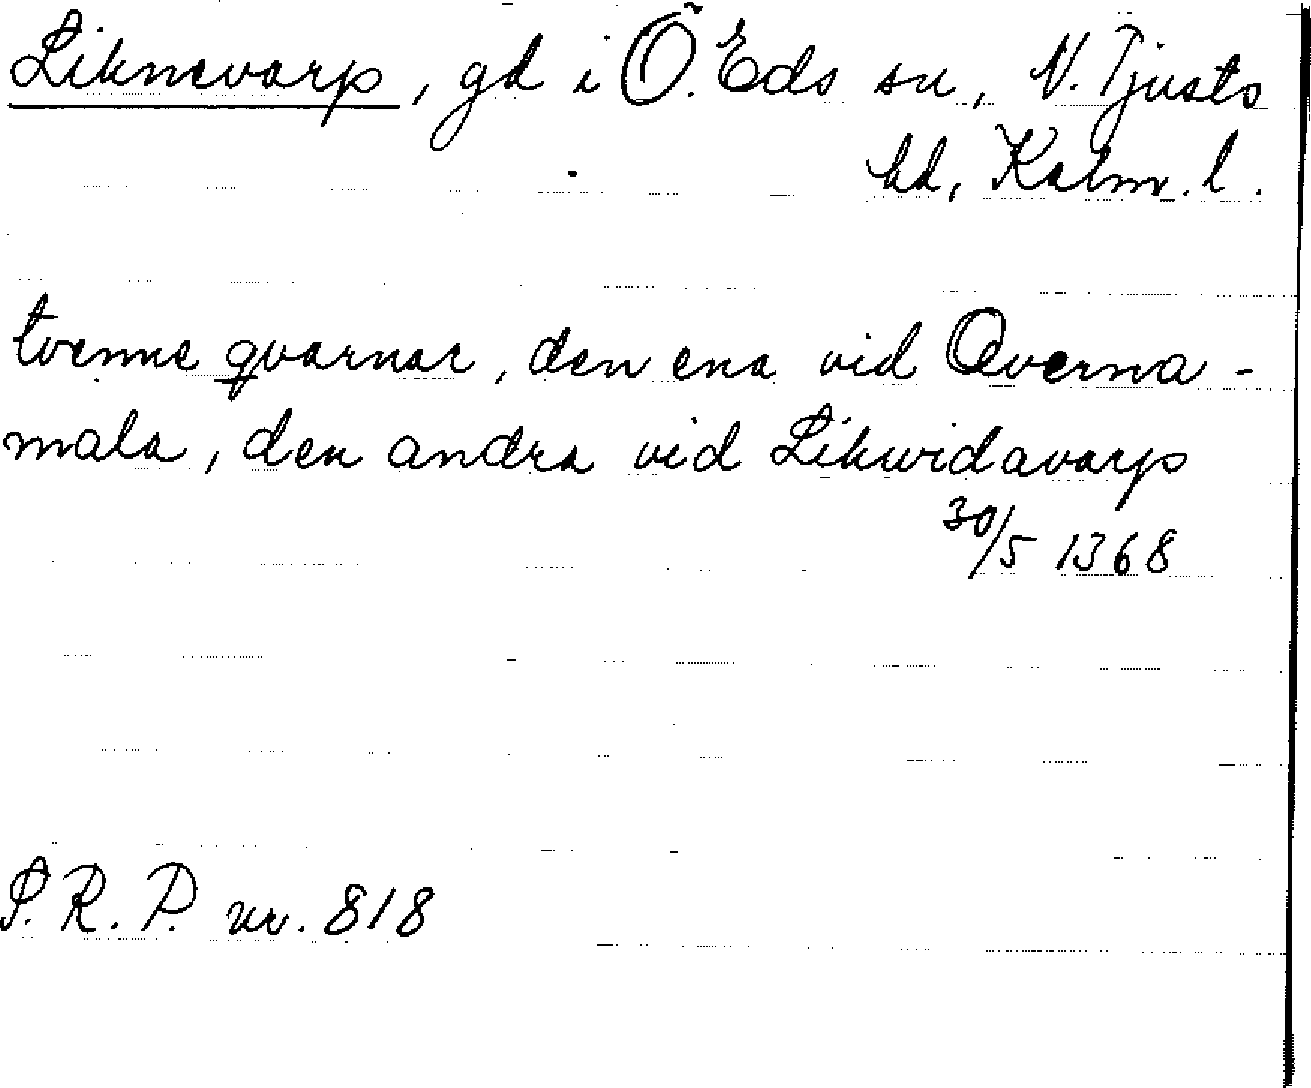 Liknevarp, gd i Ö. Eds sn, N. Tjusts
hd, Kalm. l.
tvenne qvarnar, den ena vid Qverna-
mala, den andra vid Likwidavarp
30/5 1368
S.R.P. nr. 818